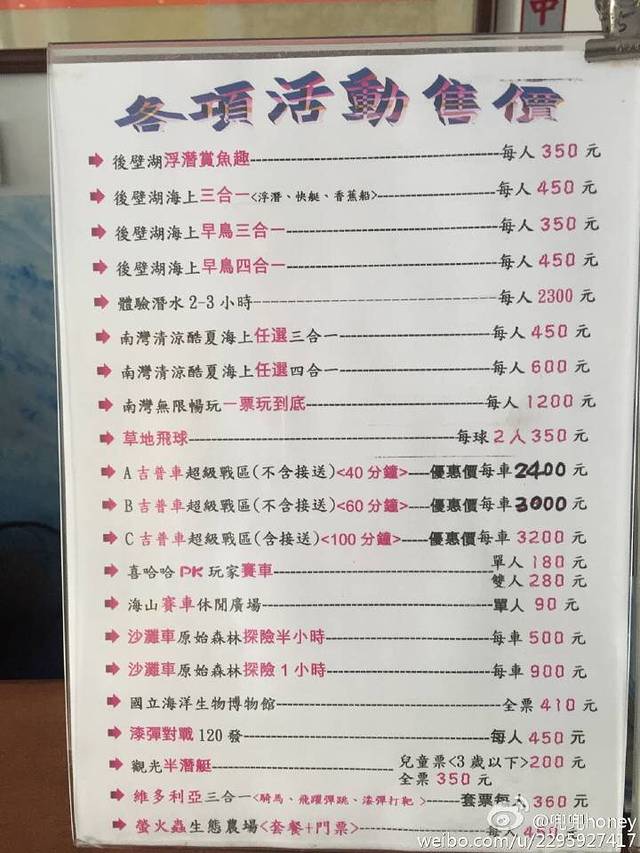 中
各項活動售價
➡ 後壁湖浮潛賞魚趣----每人 350 元
➡ 後壁湖海上三合一<浮潛、快艇、香蕉船>----每人 450 元
➡ 後壁湖海上早鳥三合一----每人 350 元
➡ 後壁湖海上早鳥四合一----每人 450 元
➡ 體驗潛水 2-3 小時----每人 2300 元
➡ 南灣清涼酷夏海上任選三合一----每人 450 元
➡ 南灣清涼酷夏海上任選四合一----每人 600 元
➡ 南灣無限暢玩一票玩到底----每人 1200 元
➡ 草地飛球----每球 2人 350 元
➡ A 吉普車超級戰區(不含接送)<40 分鐘>----優惠價每車 2400 元
➡ B 吉普車超級戰區(不含接送)<60 分鐘>----優惠價每車 3000 元
➡ C 吉普車超級戰區(含接送)<100 分鐘>----優惠價每車 3200 元
➡ 喜哈哈 PK 玩家賽車----單人 180 元
雙人 280 元
➡ 海山賽車休閒廣場----單人 90 元
➡ 沙灘車原始森林探險半小時----每車 500 元
➡ 沙灘車原始森林探險 1 小時----每車 900 元
➡ 國立海洋生物博物館----全票 410 元
➡ 漆彈對戰 120 發----每人 450 元
➡ 觀光半潛艇----兒童票<3 歲以下>200 元
全票 350 元
➡ 維多利亞三合一<騎馬、飛躍彈跳、漆彈打靶>----套票每人 360 元
➡ 螢火蟲生態農場<套餐+門票>----每人 450 元
@兜兜honey
weibo.com/u/2295927417